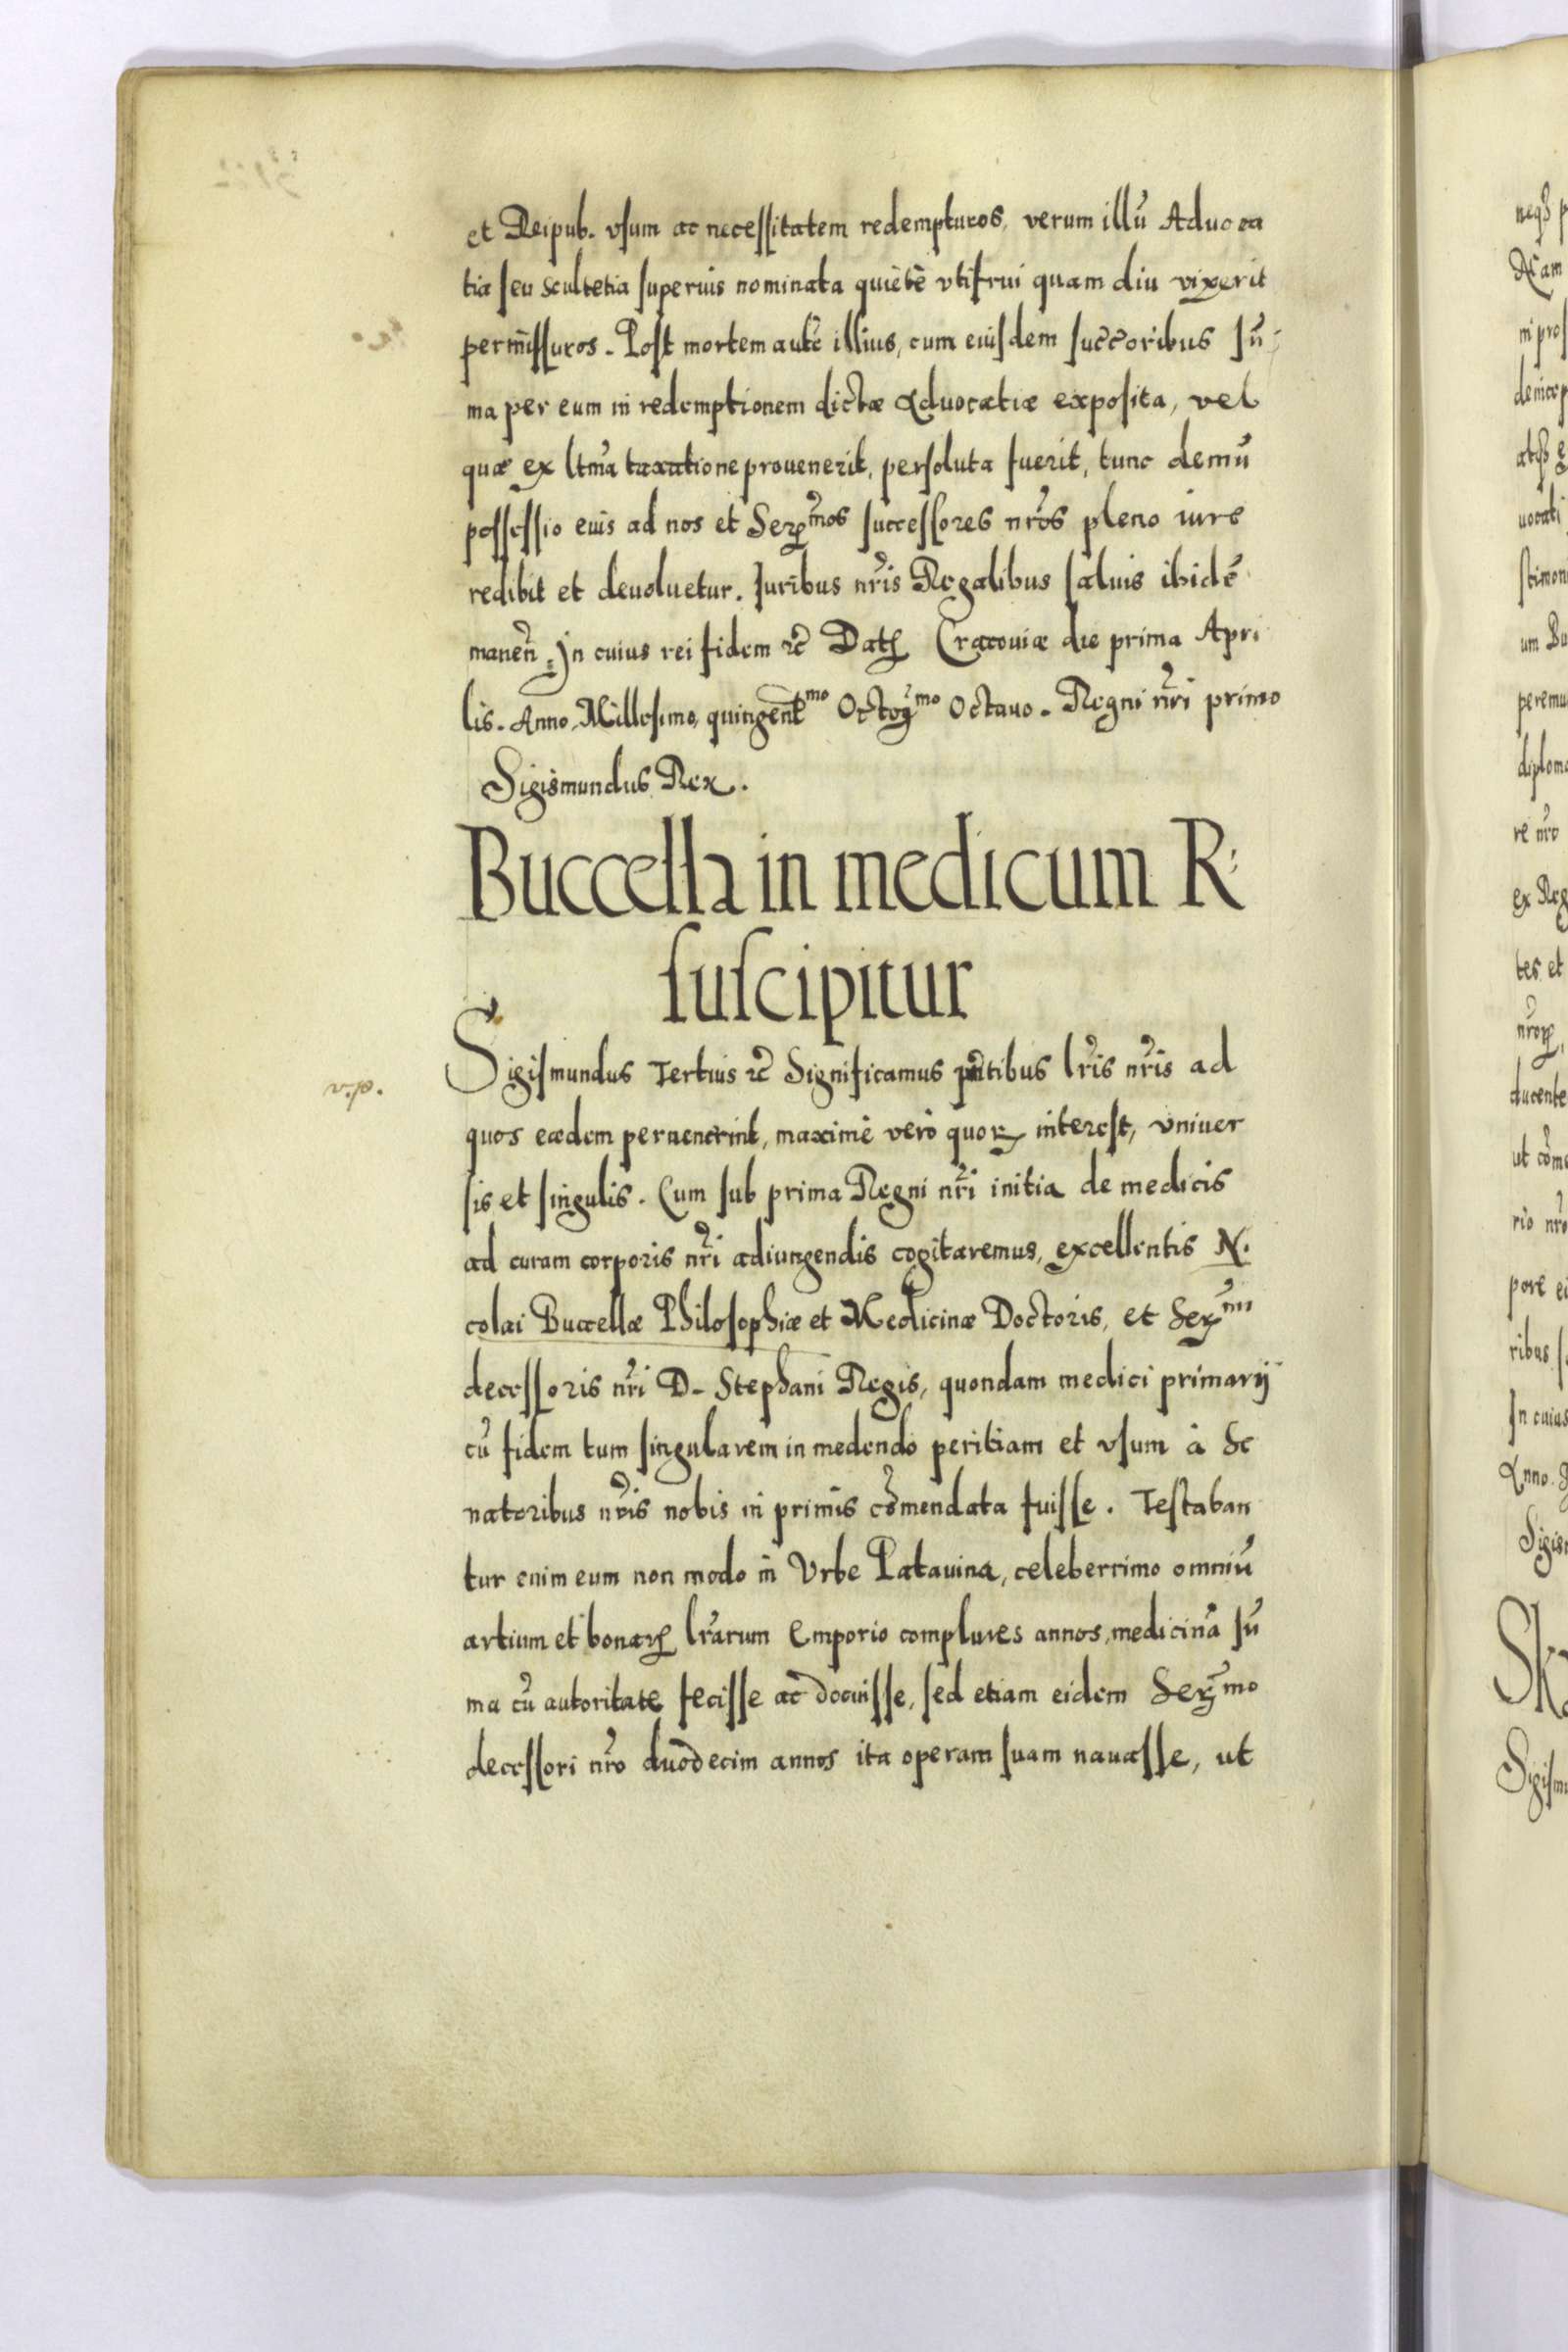 et Reipub. vsum ac necessitatem redempturos, verum illū Aduoca
tia seu scultetia superius nominata quietè vtifrui quam diu vixerit
permissuros. Post mortem autē illius, cum eiusdem succ̄oribus sū
ma per eum in redemptionem dictæ Aduocatiæ exposita, vel
quæ ex ltīma taxatione prouenerit, persoluta fuerit, tunc demū
possessio eius ad nos et Serꝫmos successores nr̄os pleno iure
redibit et deuoluetur. Iuribus nr̄is Regalibus saluis ibidē
manen̄. In cuius rei fidem ⁊c̄ Datꝫ Cracouiæ die prima Apri
lis. Anno Millesimo, quingent̄mo Octoꝫmo Octauo. Regni nr̄i primo
Sigismundus Rex.
Buccella in medicum R:
suscipitur
v.p.
Sigismundus Tertius ⁊c̄ Significamus pn̄tibus lr̄is nr̄is ad
quos eædem peruenerint, maximè verò quoꝝ interest, vniuer
sis et singulis. Cum sub prima Regni nr̄i initia de medicis
ad curam corporis nr̄i adiungendis cogitaremus, excellentis N.
colai Buccellæ Philosophiæ et Medicinæ Doctoris, et Serꝫmi
decessoris nr̄i D. Stephani Regis, quondam medici primarij
cū fidem tum singularem in medendo peritiam et vsum à Se
natoribus nr̄is nobis in primis cōmendata fuisse. Testaban
tur enim eum non modo in Vrbe Patauina, celeberrimo omniū
artium et bonaꝝ lr̄arum Emporio complures annos, medicinā sū
ma cū autoritate fecisse ac docuisse, sed etiam eidem Serꝫmo
decessori nr̄o duodecim annos ita operam suam nauasse, ut